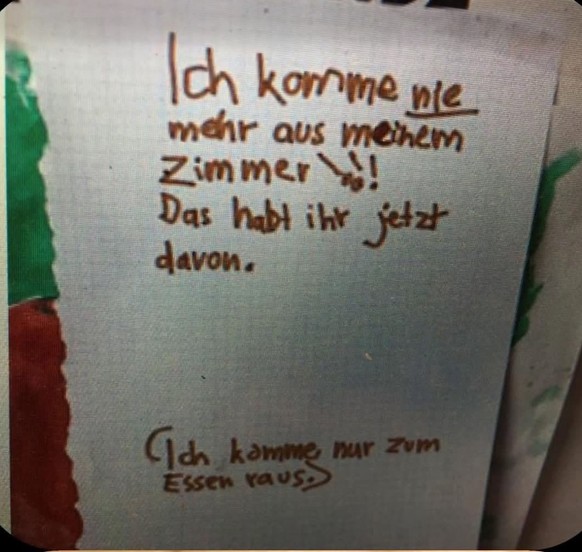 Ich komme nie
mehr aus meinem
Zimmer !!!
Das habt ihr jetzt
davon.
(Ich komme nur zum
Essen raus.)